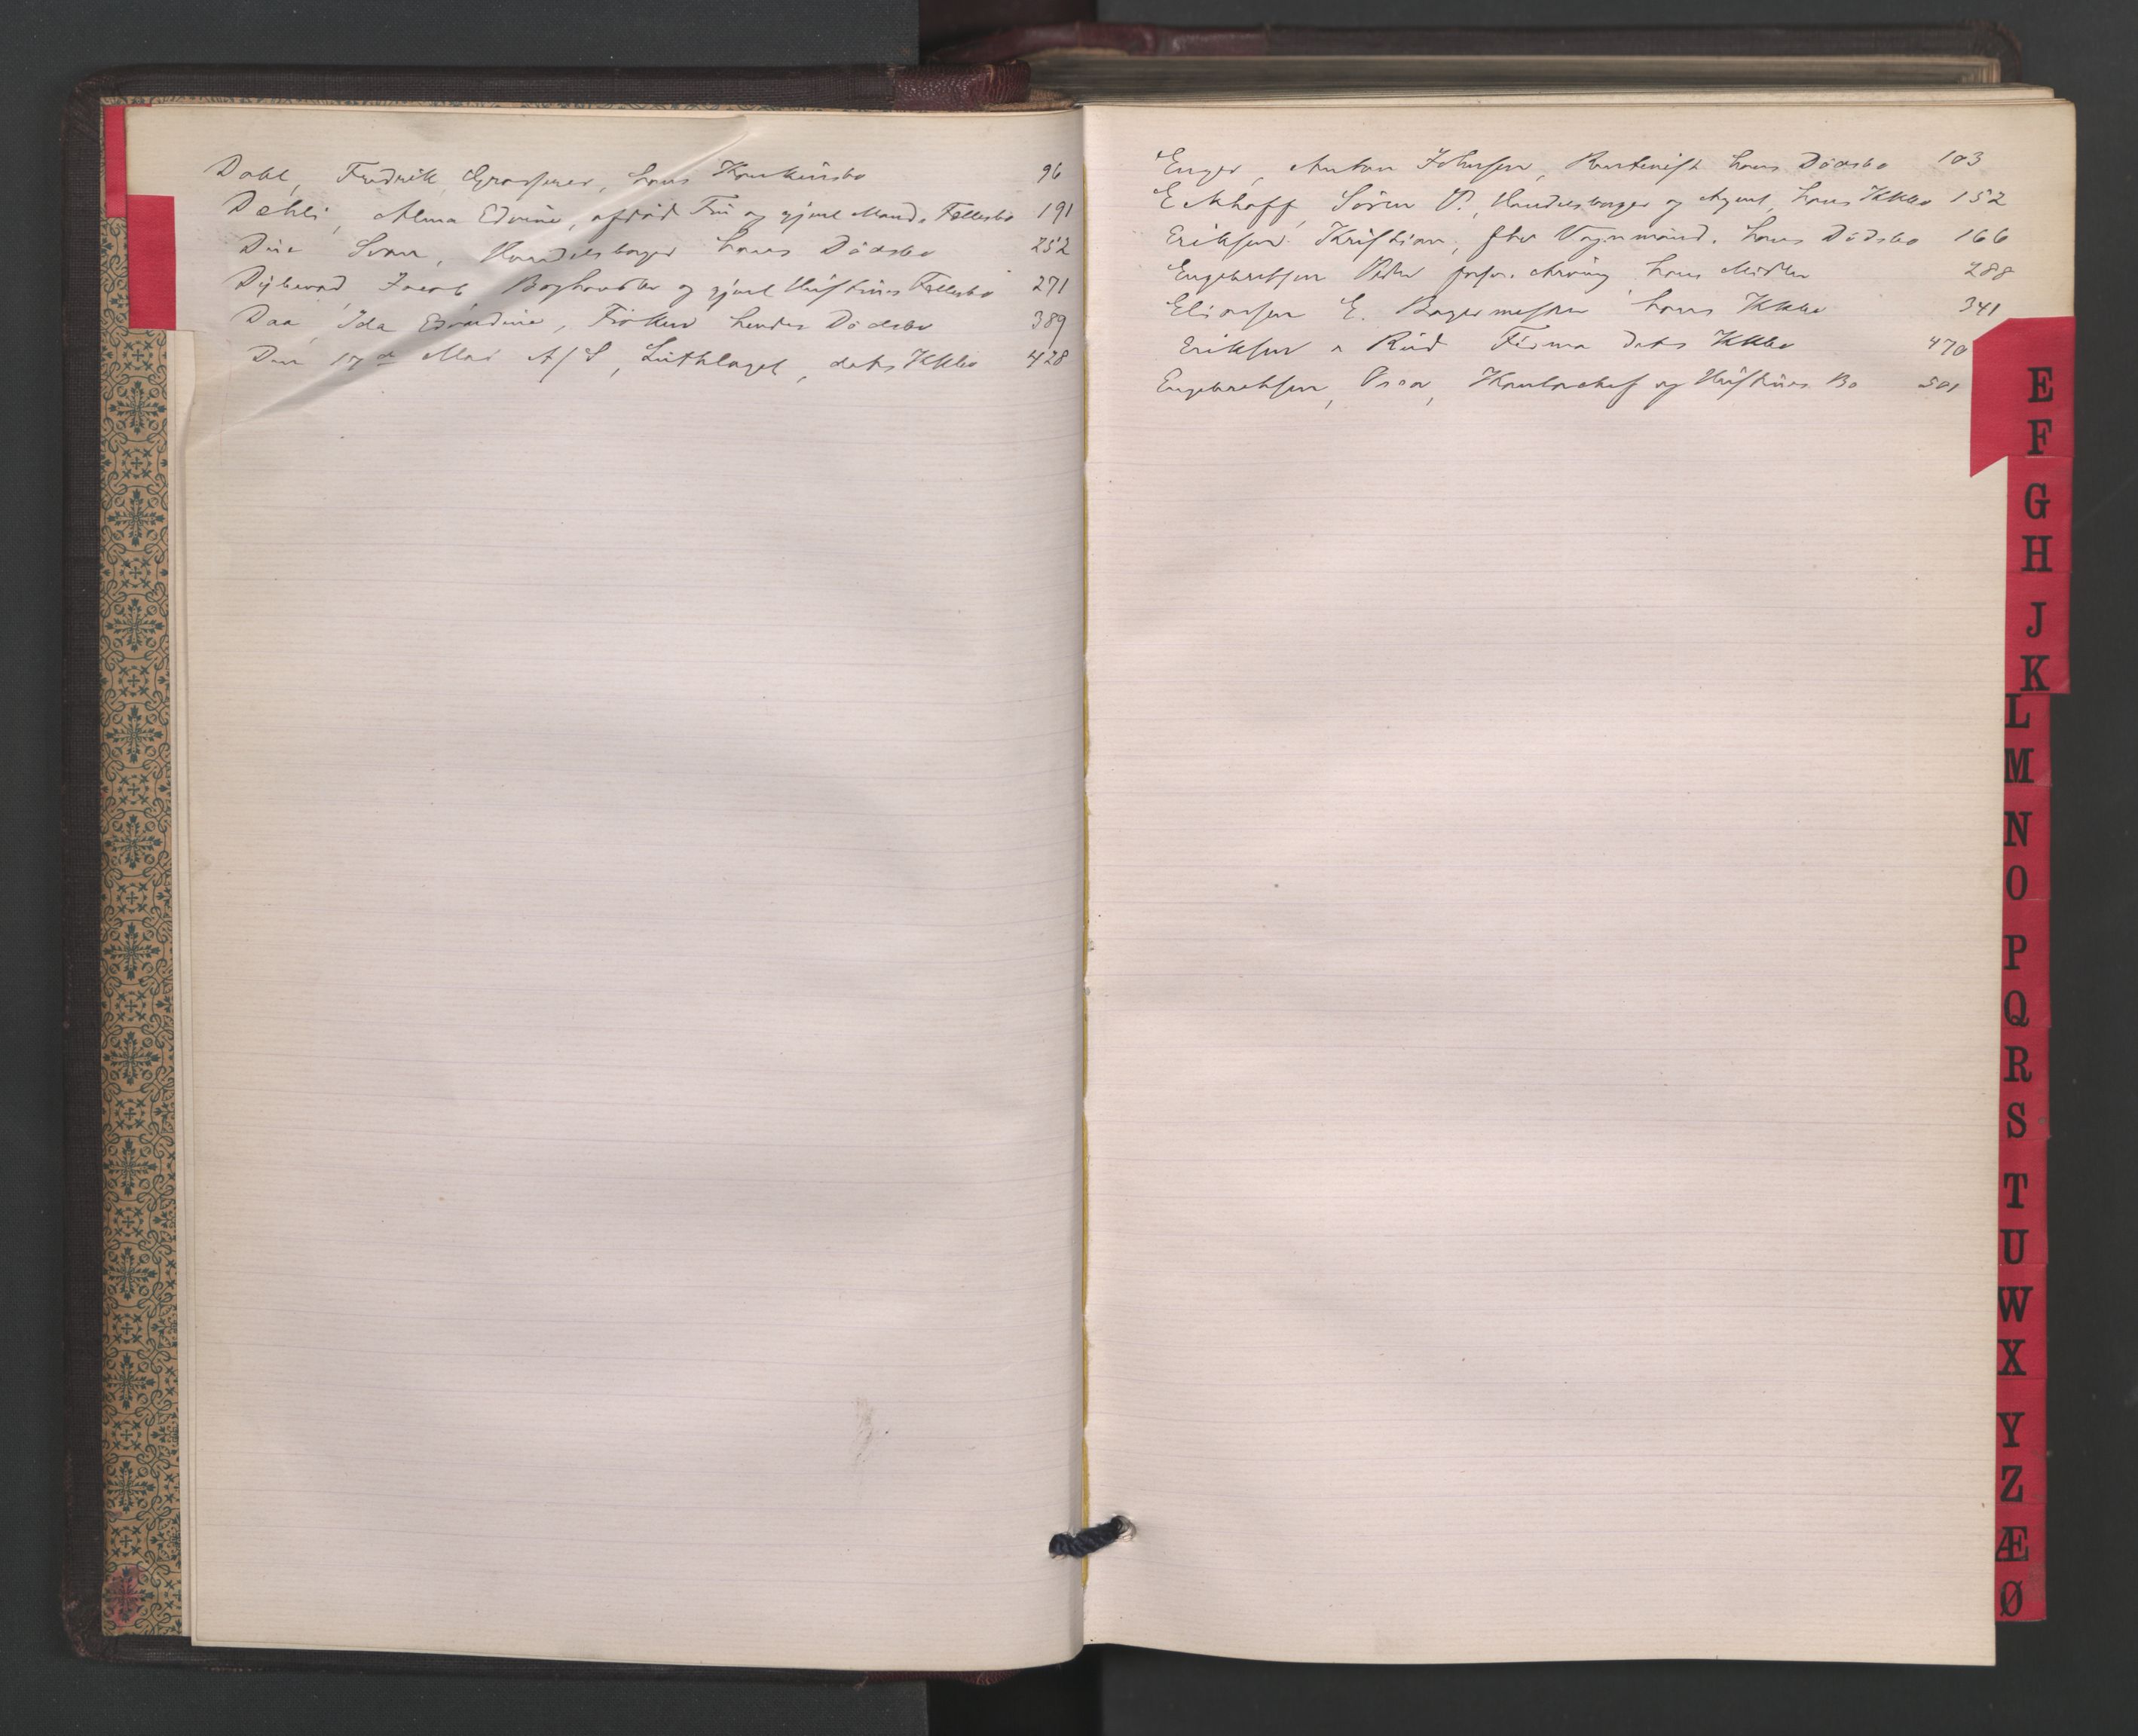 Dahl, Fredrik, Grosserer, hans Konkursbo 96
Dehli, Alma Edvine, afdöd Fru og gjenl. Mands Fællesbo 191
Due Svan, Handelsborger hans Dödsbo 252
Dybwad Jacob, Boghandler og gjenl Hustrues Fællesbo 271
Daa, Ida, Fröken hendes Dödsbo 389
Den 17de Mai A/S, dets Kkbo 428
Enger, Anton Johnsen, hans Dödsbo 103
Eckhoff, Sören P., Handelsborger og Agent, hans Kkbo 152
Eriksen Kristian, fhv Vognmand. hans Dödsbo 166
Engebretsen Peder hans Midler 288
Eliassen E. Bagermester hans Kkbo 341
Eriksen & Rud Firma dets Kkbo 470
Engebretsen, Oscar, Kontorchef og Hustrues Bo 501
E
F
G
H
J
K
L
M
N
O
P
Q
R
S
T
U
W
X
Y
Z
Æ
Ø